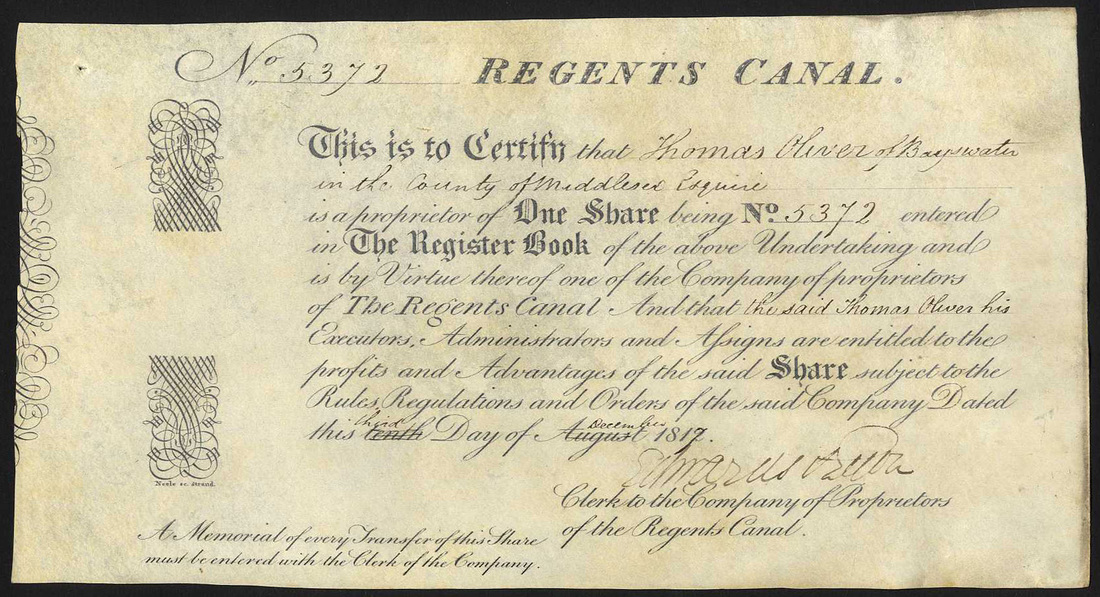 No. 5372 REGENTS CANAL.
This is to Certify that Thomas Oliver of Bayswater
in the County of Middlesex Esquire
is a proprietor of One Share being No. 5372 entered
in The Register Book of the above Undertaking and
is by Virtue thereof one of the Company of proprietors
of The Regents Canal And that the said Thomas Oliver his
Executors, Administrators and Assigns are entitled to the
profits and Advantages of the said Share subject to the
Rules, Regulations and Orders of the said Company Dated
third December
this tenth Day of August 1817.
Neele sc. strand.
Clerk to the Company of Proprietors
of the Regents Canal.
A Memorial of every Transfer of this Share
must be entered with the Clerk of the Company.